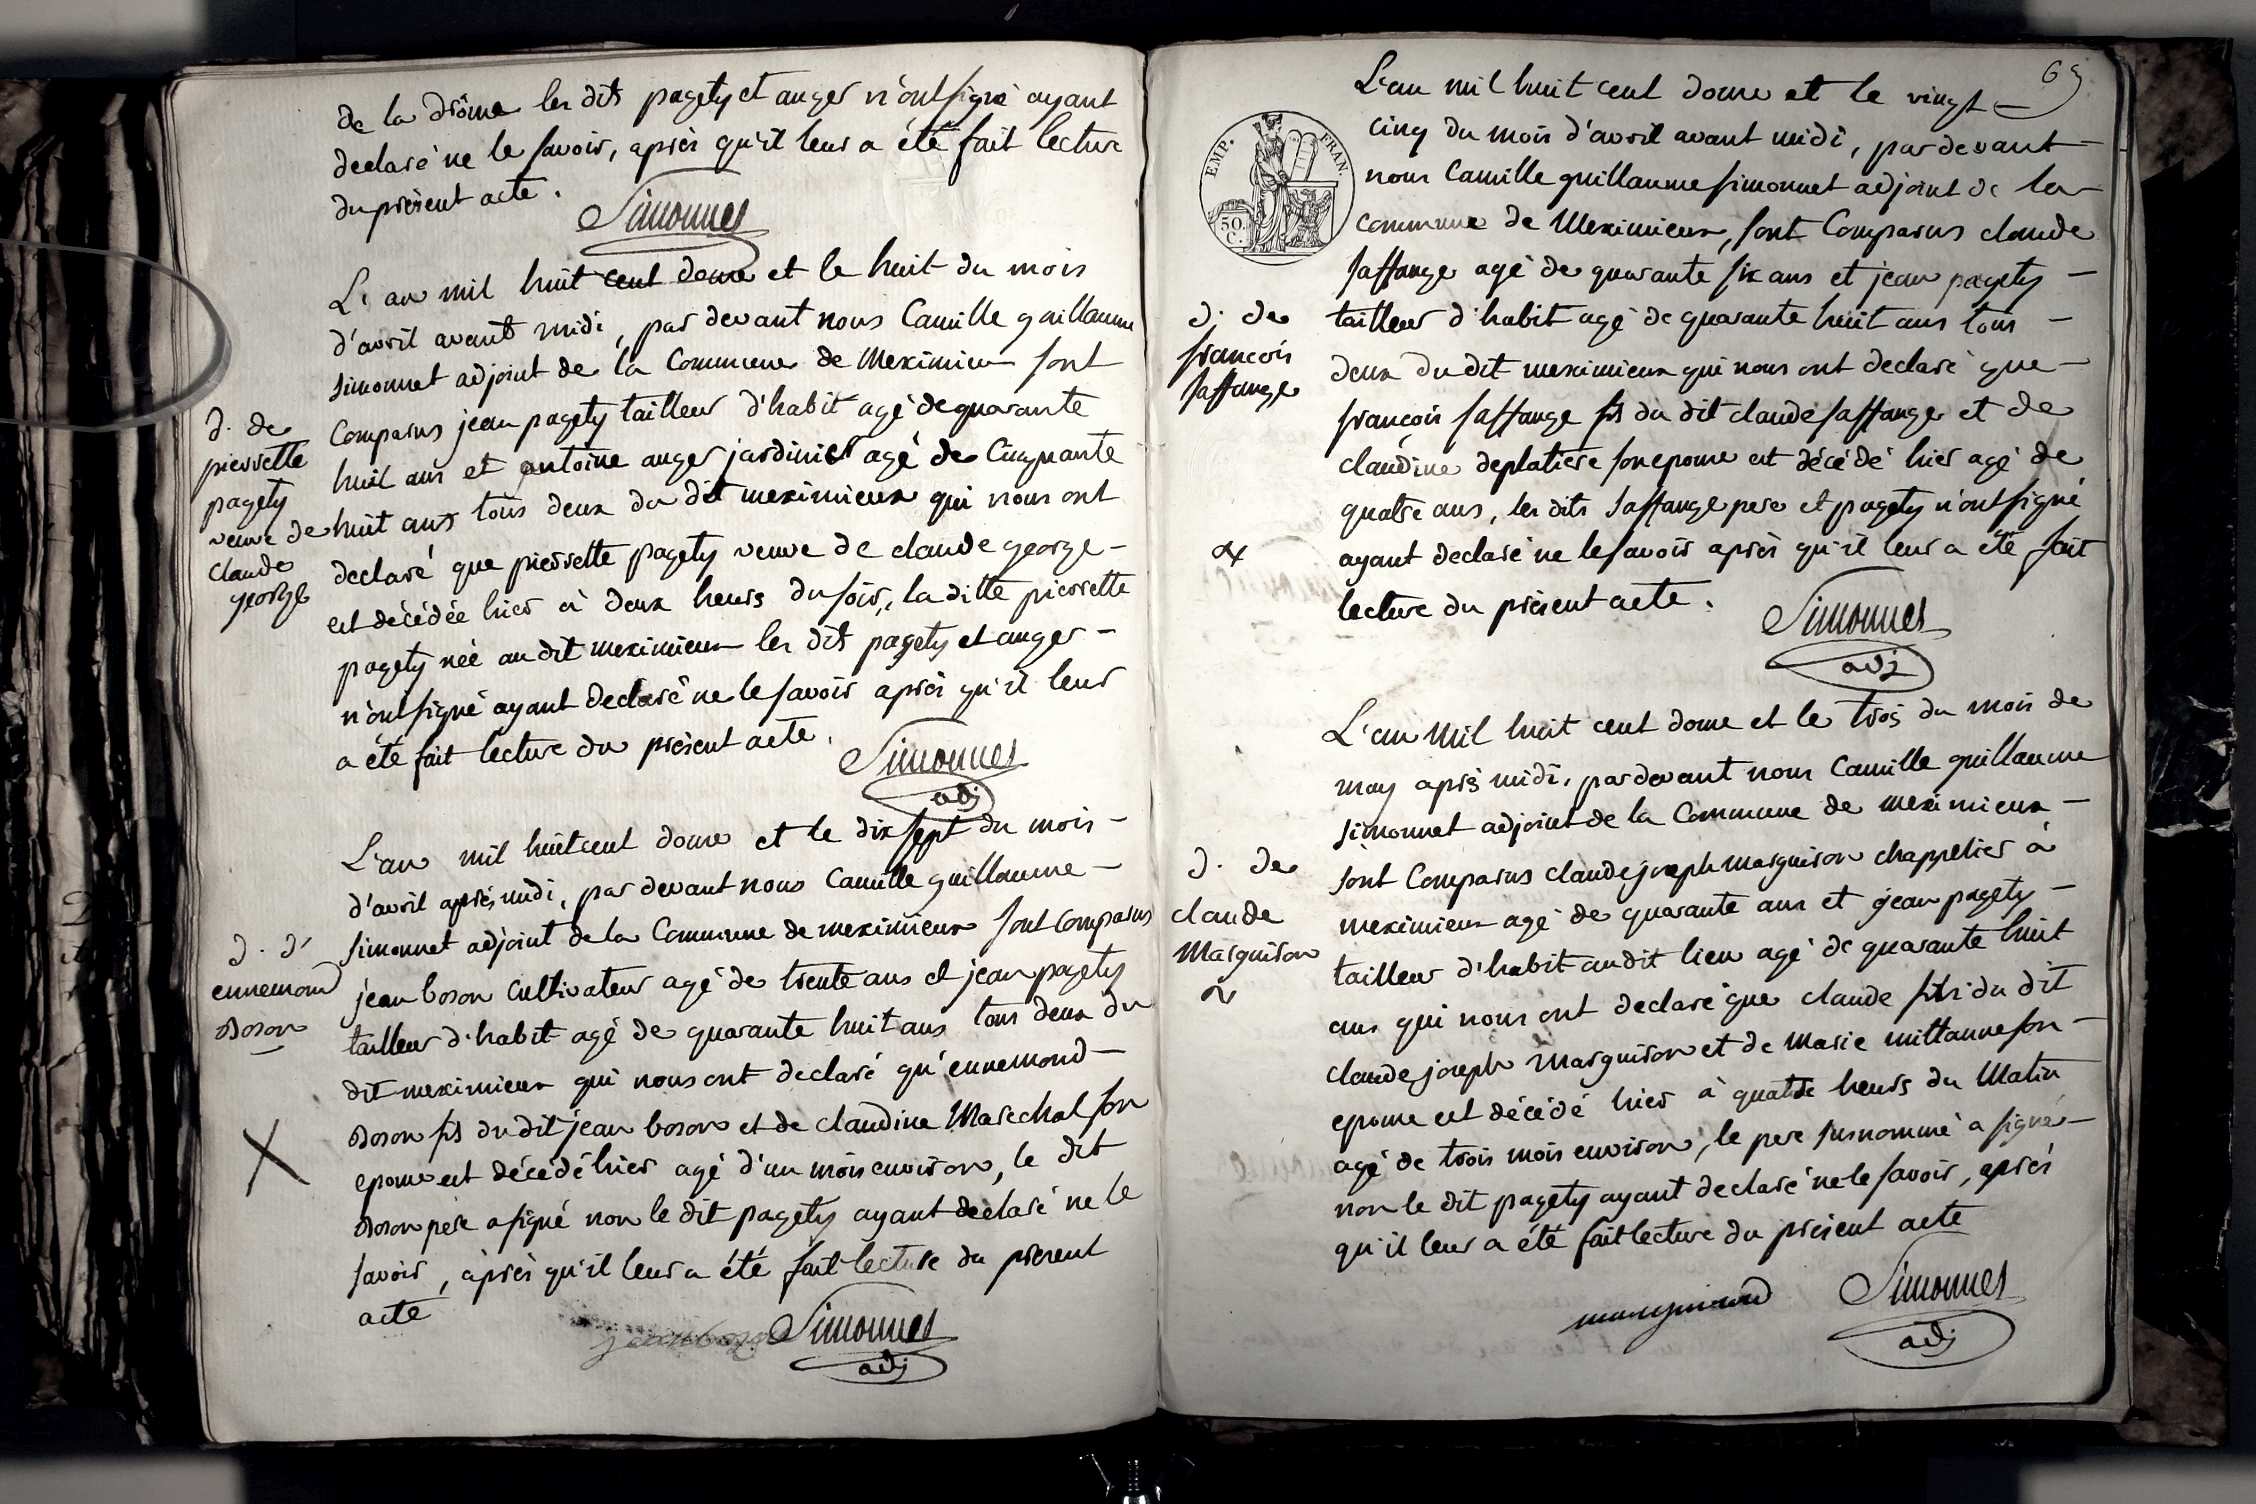 de la drôme les dits pagety et auger n'ont signé ayant
declaré ne le savoir, après qu'il leur a été fait lecture
du présent acte.
Simonnet
L'an mil huit cent douze et le huit du mois
d'avril avant midi, par devant nous Camille guillaume
simonnet adjoint de la Commune de Meximieux sont
Comparus jean pagety tailleur d'habit agé de quarante
huit ans et antoine auger jardinier agé de Cinquante
huit ans tous deux du dit meximieux qui nous ont
declaré que pierrette pagety veuve de claude george
est décédée hier à deux heurs du soir, la ditte pierrette
pagety née au dit meximieux les dits pagety et auger
n'ont signé ayant declaré ne le savoir après qu'il leur
a été fait lecture du présent acte.
Simonnet
adj
d. de
pierrette
pagety
veuve de
claude
george
L'an mil huit cent douze et le dix sept du mois
d'avril après midi, par devant nous Camille guillaume
simonnet adjoint de la Commune de meximieux sont Comparus
jean boson cultivateur agé de trente ans et jean pagety
tailleur d'habit agé de quarante huit ans tous deux du
dit meximieux qui nous ont declaré qu'ennemond
Boson fils du dit jean boson et de claudine Marechal son
epouse est décédé hier agé d'un mois environ, le dit
Boson père a signé non le dit pagety ayant declaré ne le
savoir, après qu'il leur a été fait lecture du present
acte
jean boson
Simonnet
adj
d. d'
ennemond
Boson
X
69
L'an mil huit cent douze et le vingt
cinq du mois d'avril avant midi, par devant
nous Camille guillaume simonnet adjoint de la
commune de Meximieux, sont Comparus claude
saffange agé de quarante six ans et jean pagety
tailleur d'habit agé de quarante huit ans tous
deux du dit meximieux qui nous ont declaré que
françois saffange fils du dit claude saffange et de
claudine deplatiere son epouse est décédé hier agé de
quatre ans, les dits saffange pere et pagety n'ont signé
ayant declaré ne le savoir après qu'il leur a été fait
lecture du présent acte.
Simonnet
adj
EMP. FRAN.
50.
C.
d. de
françois
saffange
L'an mil huit cent douze et le trois du mois de
may après midi, par devant nous Camille guillaume
simonnet adjoint de la Commune de meximieux
sont Comparus claude joseph marguiron chappelier à
meximieux agé de quarante ans et jean pagety
tailleur d'habit au dit lieu agé de quarante huit
ans qui nous ont declaré que claude fils du dit
claude joseph Marguiron et de Marie mittanne son
epouse est décédé hier à quatre heurs du Matin
agé de trois mois environ, le pere susnommé a signé
non le dit pagety ayant declaré ne le savoir, après
qu'il leur a été fait lecture du présent acte
Simonnet
adj
d. de
claude
Marguiron